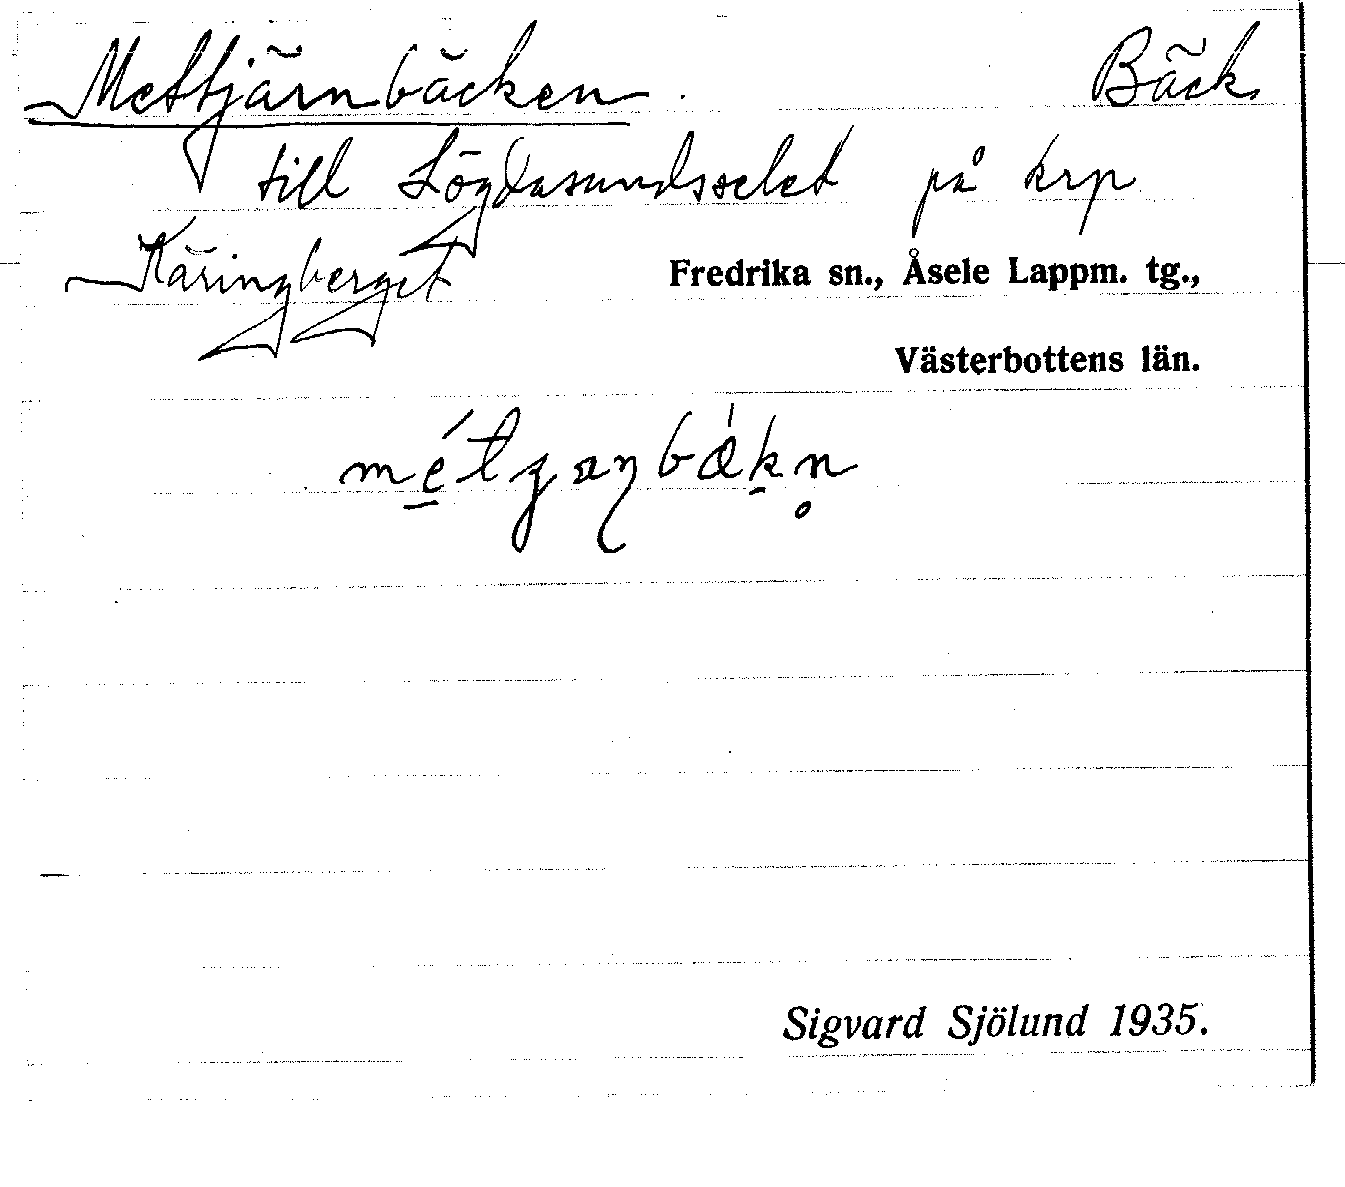 Mettjärnbäcken. Bäck
till Lögdasundsselet på krp
Käringberget Fredrika sn., Åsele Lappm. tg.,
Västerbottens län.
Sigvard Sjölund 1935.